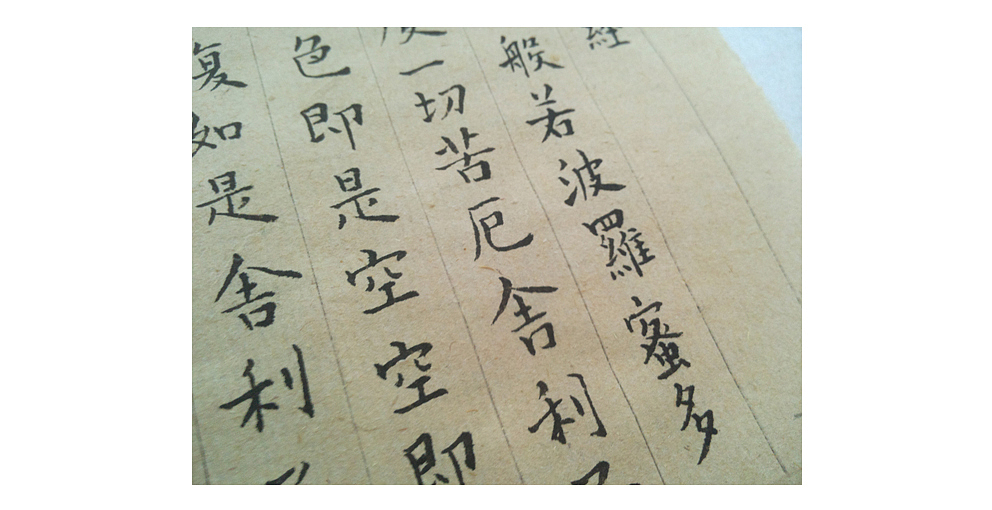 經
般若波羅蜜多
度一切苦厄舍利
色即是空空即
复如是舍利